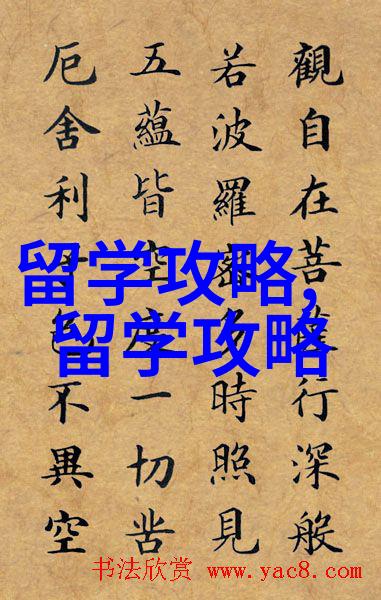 觀自在菩薩行深般
若波羅蜜多時照見
五蘊皆空度一切苦
厄舍利子色不異空
留学攻略,
留学攻略
书法欣赏 www.yac8.com